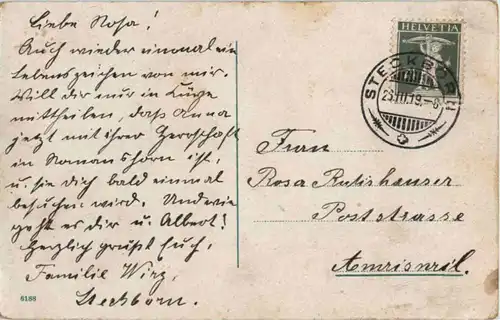 Liebe Rosa!
Auch wieder einmal ein
Lebenszeichen von mir.
Will dir nur in Kürze
mittheilen, daß Anna
jetzt mit ihrer Herrschaft
in Romanshorn ist,
u. sie dich bald einmal
besuchen wird. Und wie
geht es dir u. Albert!
Herzlich grüßt Euch,
Familie Wirz,
Steckborn.
6188
HELVETIA
STECKBORN
23.III.19.-8
Frau
Rosa Rutishauser
Poststrasse
Amriswil.